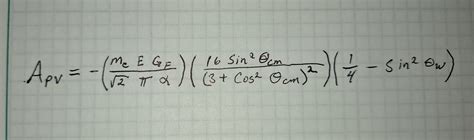 A_PV = -(m_e E G_F / √2 π α) (16 sin² θ_cm / (3 + cos² θ_cm)²) (1/4 - sin² θ_w)